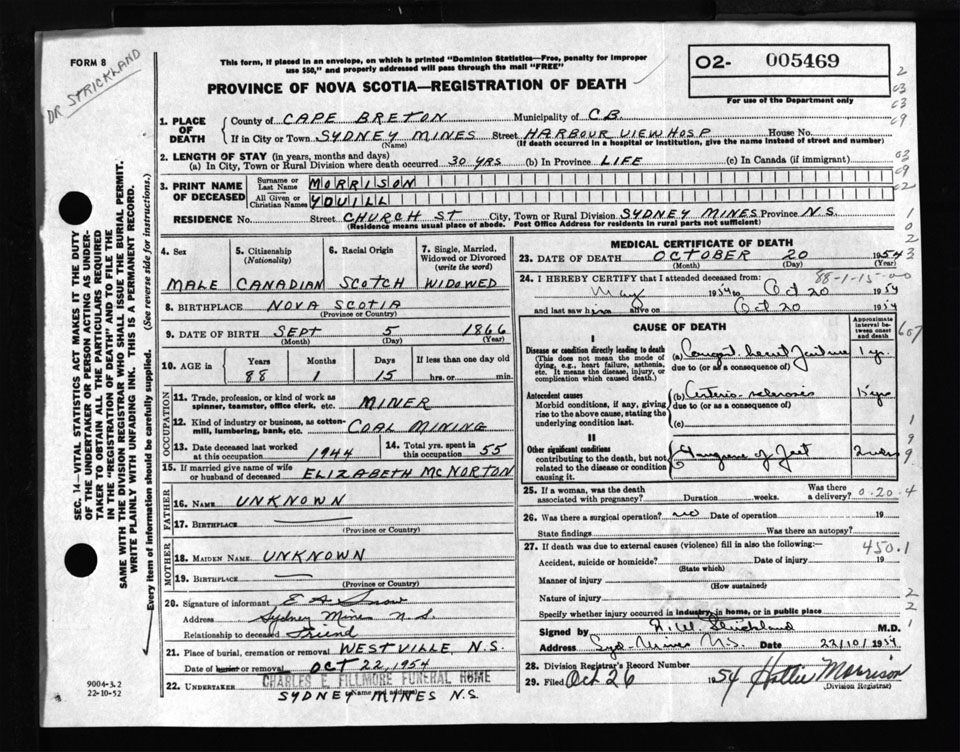 FORM 8
DR STRICKLAND
This form, if placed in an envelope, on which is printed "Dominion Statistics—Free, penalty for improper
use $50," and properly addressed will pass through the mail "FREE"
PROVINCE OF NOVA SCOTIA—REGISTRATION OF DEATH
O2- 005469
For use of the Department only
1. PLACE OF DEATH
County of CAPE BRETON Municipality of C.B.
If in City or Town SYDNEY MINES Street HARBOUR VIEW HOSP House No.
(Name) (If death occurred in a hospital or institution, give the name instead of street and number)
2. LENGTH OF STAY (in years, months and days)
(a) In City, Town or Rural Division where death occurred 30 YRS (b) In Province LIFE (c) In Canada (if immigrant)
3. PRINT NAME OF DECEASED
Surname or Last Name MORRISON
All Given or Christian Names YOUILL
RESIDENCE No. Street CHURCH ST City, Town or Rural Division SYDNEY MINES Province N.S.
(Residence means usual place of abode. Post Office Address for residents in rural parts not sufficient)
4. Sex
MALE
5. Citizenship (Nationality)
CANADIAN
6. Racial Origin
SCOTCH
7. Single, Married, Widowed or Divorced (write the word)
WIDOWED
8. BIRTHPLACE NOVA SCOTIA
(Province or Country)
9. DATE OF BIRTH SEPT 5 1866
(Month) (Day) (Year)
10. AGE in
Years Months Days If less than one day old
88 1 15 hrs. or min.
OCCUPATION
11. Trade, profession, or kind of work as spinner, teamster, office clerk, etc. MINER
12. Kind of industry or business, as cotton-mill, lumbering, bank, etc. COAL MINING
13. Date deceased last worked at this occupation 1944
14. Total yrs. spent in this occupation 55
15. If married give name of wife or husband of deceased ELIZABETH MCNORTON
FATHER
16. Name UNKNOWN
17. Birthplace —
(Province or Country)
MOTHER
18. Maiden Name UNKNOWN
19. Birthplace —
(Province or Country)
20. Signature of informant E A Snow
Address Sydney Mines N.S.
Relationship to deceased Friend
21. Place of burial, cremation or removal WESTVILLE, N.S.
Date of burial or removal OCT 22, 1954
22. UNDERTAKER CHARLES E. FILLMORE FUNERAL HOME
(Name and address)
SYDNEY MINES N.S.
MEDICAL CERTIFICATE OF DEATH
23. DATE OF DEATH OCTOBER 20 1954
(Month) (Day) (Year)
88-1-15-00
24. I HEREBY CERTIFY that I attended deceased from:
May 1954 to Oct 20 1954
and last saw him alive on Oct 20 1954
CAUSE OF DEATH
Approximate interval between onset and death
I
Disease or condition directly leading to death
(This does not mean the mode of dying, e.g., heart failure, asthenia, etc. It means the disease, injury, or complication which caused death.)
(a) Congest heart failure 1 yr.
due to (or as a consequence of)
Antecedent causes
Morbid conditions, if any, giving rise to the above cause, stating the underlying condition last.
(b) Arterio-sclerosis
due to (or as a consequence of)
(c)
II
Other significant conditions
contributing to the death, but not related to the disease or condition causing it.
Gangrene of feet
25. If a woman, was the death associated with pregnancy? Duration weeks. Was there a delivery? 0.20.4
26. Was there a surgical operation? no Date of operation 19
State findings Was there an autopsy?
27. If death was due to external causes (violence) fill in also the following:— 450.1
Accident, suicide or homicide? Date of injury 19
(State which)
Manner of injury
(How sustained)
Nature of injury
Specify whether injury occurred in industry, in home, or in public place
Signed by H. W. Strickland M.D.
Address Syd. Mines N.S. 22/10/1954
28. Division Registrar's Record Number
29. Filed Oct 26 1954 Hattie Morrison
(Division Registrar)
SEC. 14—VITAL STATISTICS ACT MAKES IT THE DUTY
OF THE UNDERTAKER OR PERSON ACTING AS UNDER-
TAKER TO OBTAIN ALL THE PARTICULARS REQUIRED
IN THE "REGISTRATION OF DEATH" AND TO FILE THE
SAME WITH THE DIVISION REGISTRAR WHO SHALL ISSUE THE BURIAL PERMIT.
WRITE PLAINLY WITH UNFADING INK. THIS IS A PERMANENT RECORD.
Every item of information should be carefully supplied. (See reverse side for instructions.)
9004-3.2
22-10-52